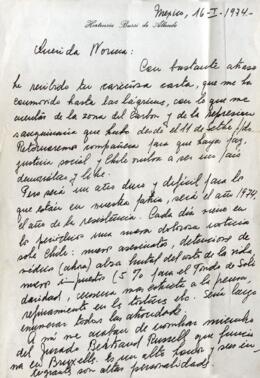 Mexico, 16-I-1974.-
Hortensia Bussi de Allende
Querida Norma:
Con bastante atraso
he recibido tu cariñosa carta, que me ha
conmovido hasta las lágrimas, con lo que me
cuentas de la zona del Carbón y de la represión
sanguinaria que hubo desde el 11 de Setbre/ pdo.
Retornaremos compañera para que haya paz,
justicia social y Chile vuelva a ser un país
democrático y libre.
Pero será un año duro y difícil para los
que están en nuestra patria, será el año 1974,
año de la resistencia. Cada día viene en
los periódicos una nueva dolorosa noticia
sobre Chile: nuevos asesinatos, detenciones de
médicos (ahora) alza brutal del costo de la vida,
nuevos impuestos (5% para el Fondo de Soli
daridad, censura más estricta a la prensa,
refinamiento en la tortura etc. Sería largo
enumerar todas las atrocidades.
A mí me acaban de nombrar miembro
del Jurado Bertrand Russell que funciona
en Bruxelles. Es un alto honor y sus in-
tegrantes son altas personalidades